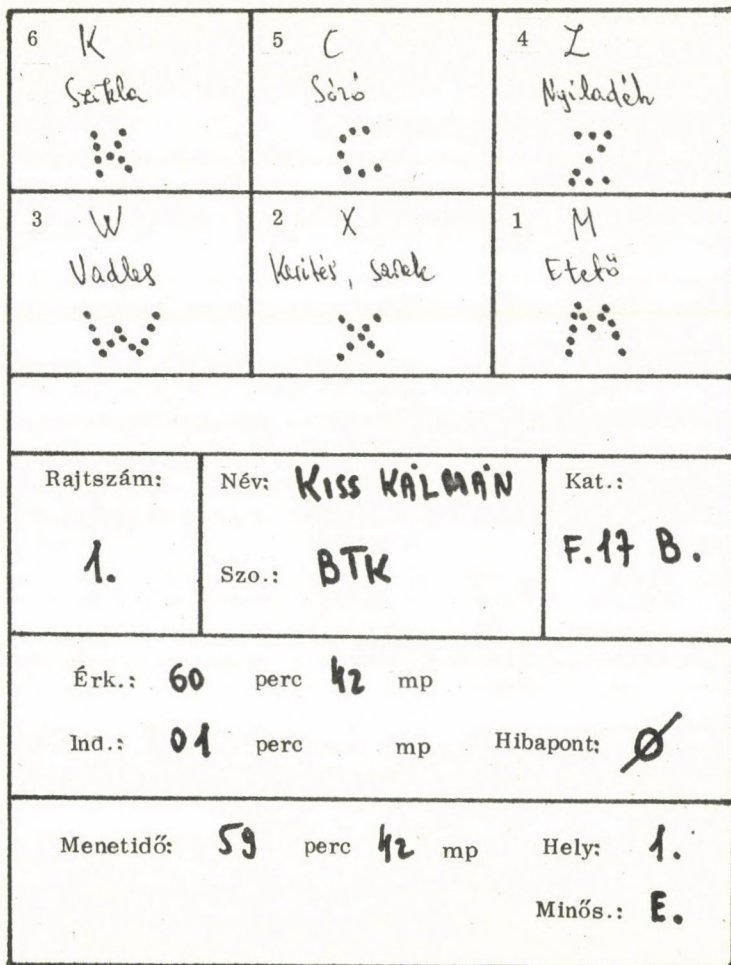 6 K
Szikla
K
5 C
Sózó
C
4 Z
Nyiladék
Z
3 W
Vadles
W
2 X
Kerítés, sarok
X
1 M
Etető
M
Rajtszám:
1.
Név: KISS KÁLMÁN
Szo.: BTK
Kat.:
F.17 B.
Érk.: 60 perc 42 mp
Ind.: 01 perc mp Hibapont: Ø
Menetidő: 59 perc 42 mp Hely: 1.
Minős.: E.